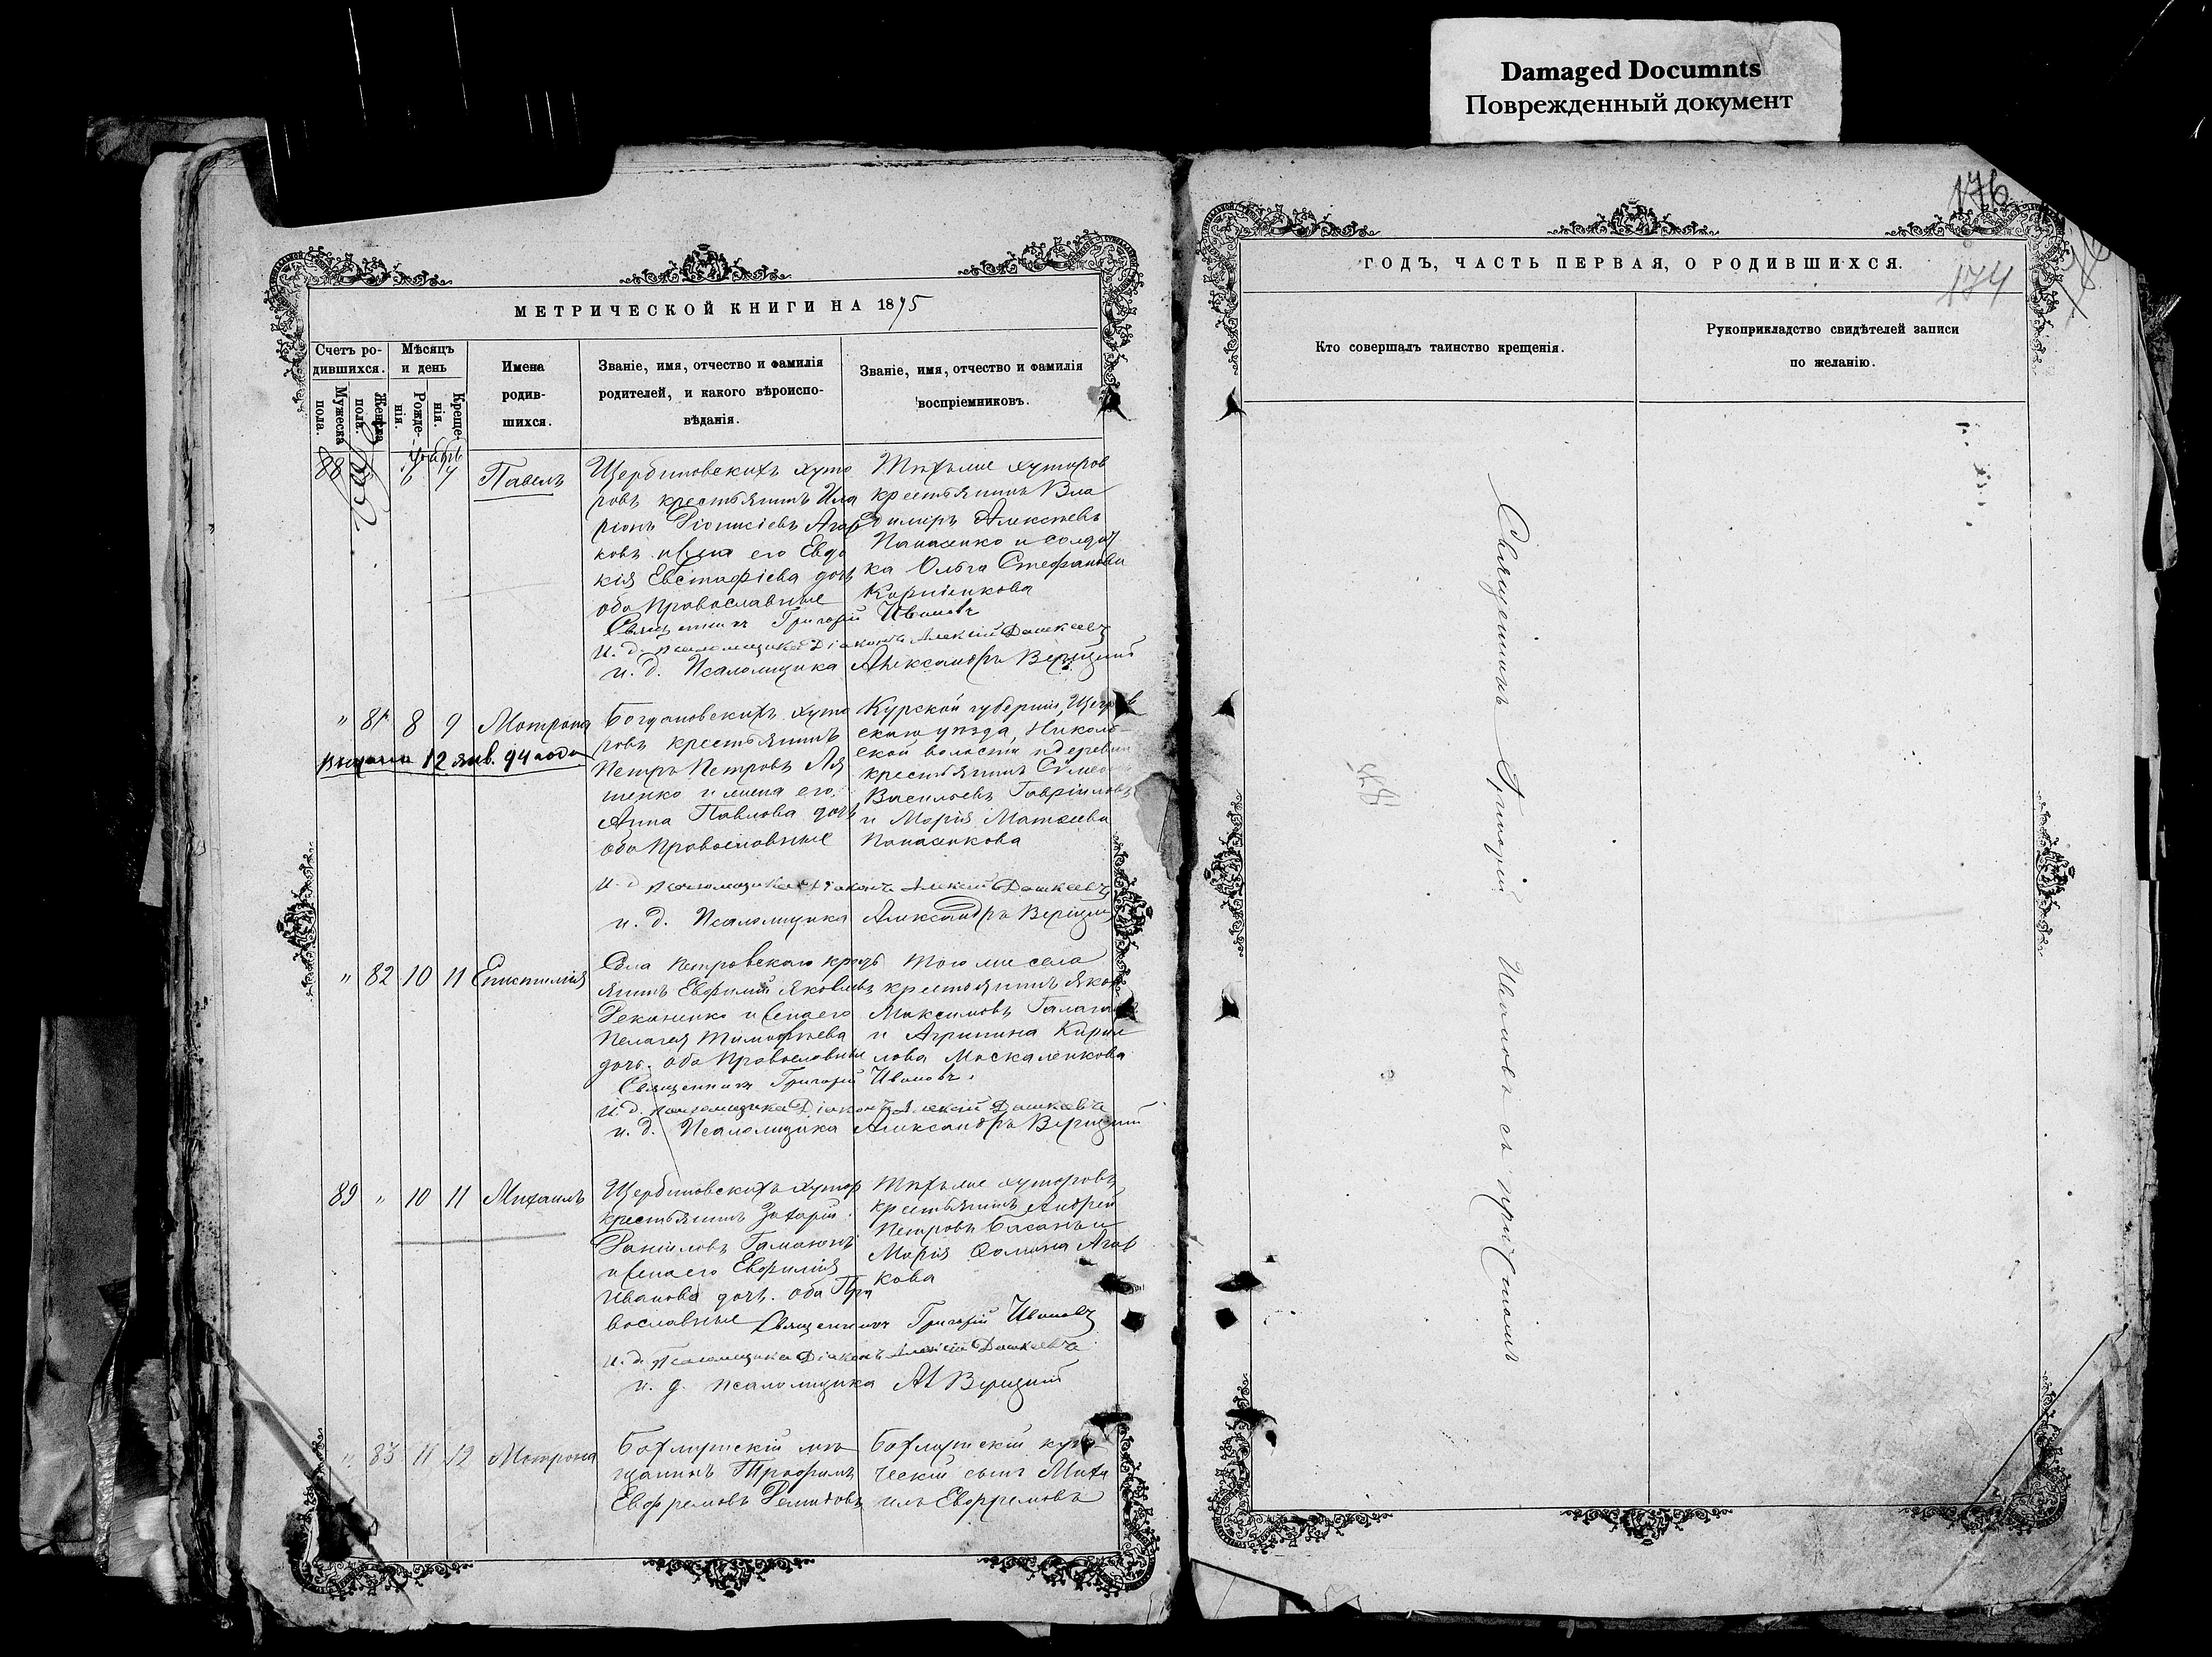 Damaged Documnts
Поврежденный документ
МЕТРИЧЕСКОЙ КНИГИ НА 1875
Счетъ ро-
дившихся.
Мѣсяцъ
и день
Мужеска
пола.
Женска
пола.
Рожде-
нія.
Креще-
нія.
Имена
родив-
шихся.
Званіе, имя, отчество и фамилія
родителей, и какого вѣроиспо-
вѣданія.
Званіе, имя, отчество и фамилія
воспріемниковъ.
88
6 7
Павелъ
Щербиновскихъ хуто
ровъ крестьянинъ Ила
ріонъ Діонисіевъ Агар
ковъ и жена его Евдо
кія Евстафіева дочь
оба Православные
Тѣхъ же хуторовъ
крестьянинъ Вла
димиръ Алексѣевъ
Панасенко и солдат
ка Ольга Стефанова
Корніенкова
Священникъ Григорій Ивановъ
И. д. псаломщика Діаконъ Алексій Дашкевъ
и. д. Псаломщика Александръ Верицкій
" 81 8 9 Матрона
12 янв. 94 года
Богдановскихъ хуто
ровъ крестьянинъ
Петръ Петровъ Ля
шенко и жена его
Анна Павлова дочь
оба Православные
Курской губерніи, Щигров
скаго уѣзда, Николь-
ской волости и деревни
крестьянинъ Сѵмеонъ
Васильевъ Гавриловъ
и Марія Матвеева
Панасенкова
И. д. псаломщика Діаконъ Алексій Дашкевъ
и. д. Псаломщика Александръ Верицкій
" 82 10 11 Епистимія
Села Петровскаго крест
янинъ Евфимій Яковлевъ
Деканенко и жена его
Пелагея Тимофѣева
дочь. оба Православные
того же села
крестьянинъ Яков
Максимовъ Галаган
и Агрипина Кирил
лова Москаленкова
Священникъ Григорій Ивановъ.
И. д. псаломщика Діаконъ Алексій Дашкевъ
и. д. Псаломщика Александръ Верицкій
89 " 10 11 Михаилъ
Щербиновскихъ хутор
крестьянинъ Захарій
Даніиловъ
и жена его Евфимія
Иванова дочь. оба Пра
вославные
Тѣхъ же хуторовъ
крестьянинъ Андрей
Петровъ Басанъ и
Марія Фомина Агар
кова
Священникъ Григорій Ивановъ
И. д. Псаломщика Діаконъ Алексій Дашкевъ
и. д. псаломщика Ал Верицкій
" 83 11 12 Матрона
Бахмутскій мѣ
щанинъ Трофимъ
Евфремовъ Демидовъ
Бахмутскій купе-
ческій сынъ Миха
илъ Евфремовъ
176
174
ГОДЪ, ЧАСТЬ ПЕРВАЯ, О РОДИВШИХСЯ.
Кто совершалъ таинство крещенія.
Рукоприкладство свидѣтелей записи
по желанію.
Священникъ Григорій Ивановъ съ причтомъ